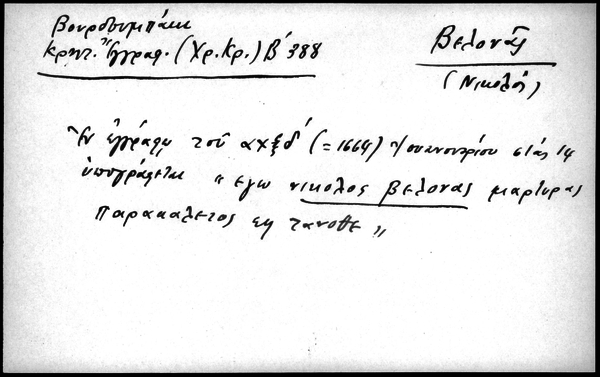 Βουρδουμπάκι
Κρητ. Ἔγγραφ. (Χρ. Κρ.) Β΄ 388
Βελονᾶς
(Νικολός)
Ἐν ἐγγράφῳ τοῦ αχξδ΄ (= 1664) Ἰουαννουρίου στάς 14
ὑπογράφεται „ εγω νικολος βελονας μαρτυρας
παρακαλετος εις τανοθε „